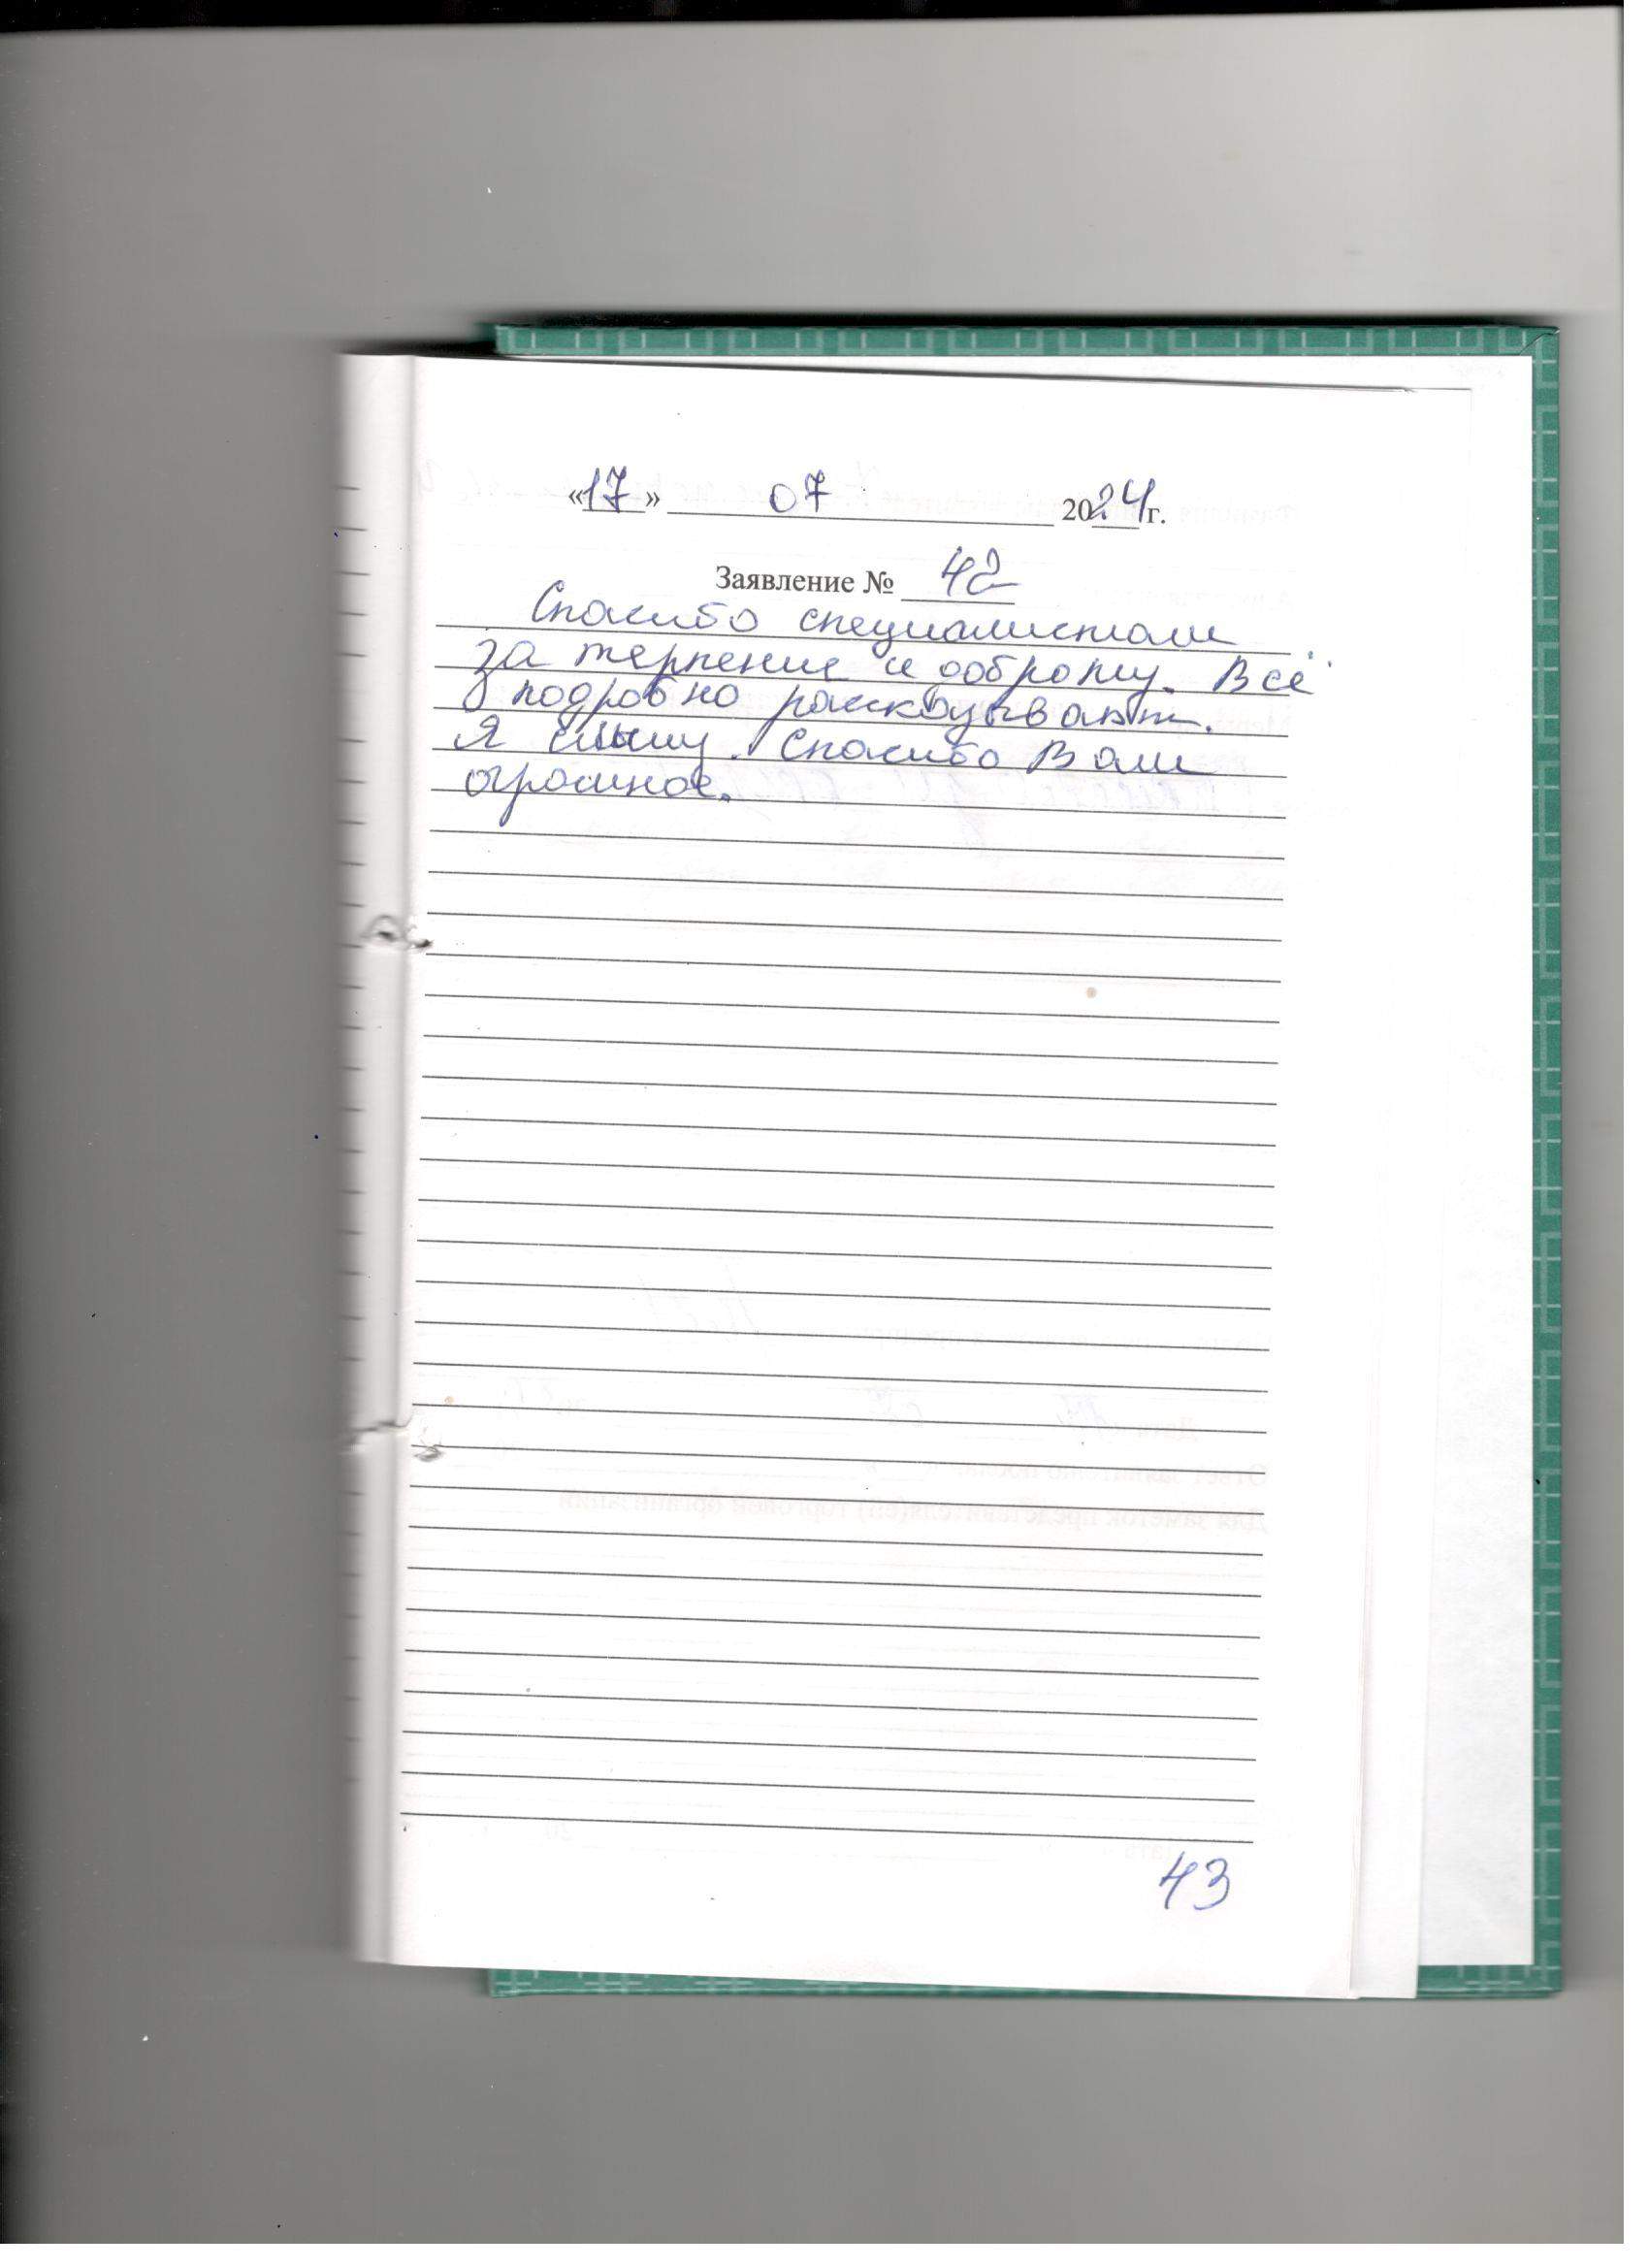 «17» 07 2024г.
Заявление № 42
Спасибо специалистам
за терпение и доброту. Всё
подробно рассказывают.
Я слышу. Спасибо Вам
огромное.
43